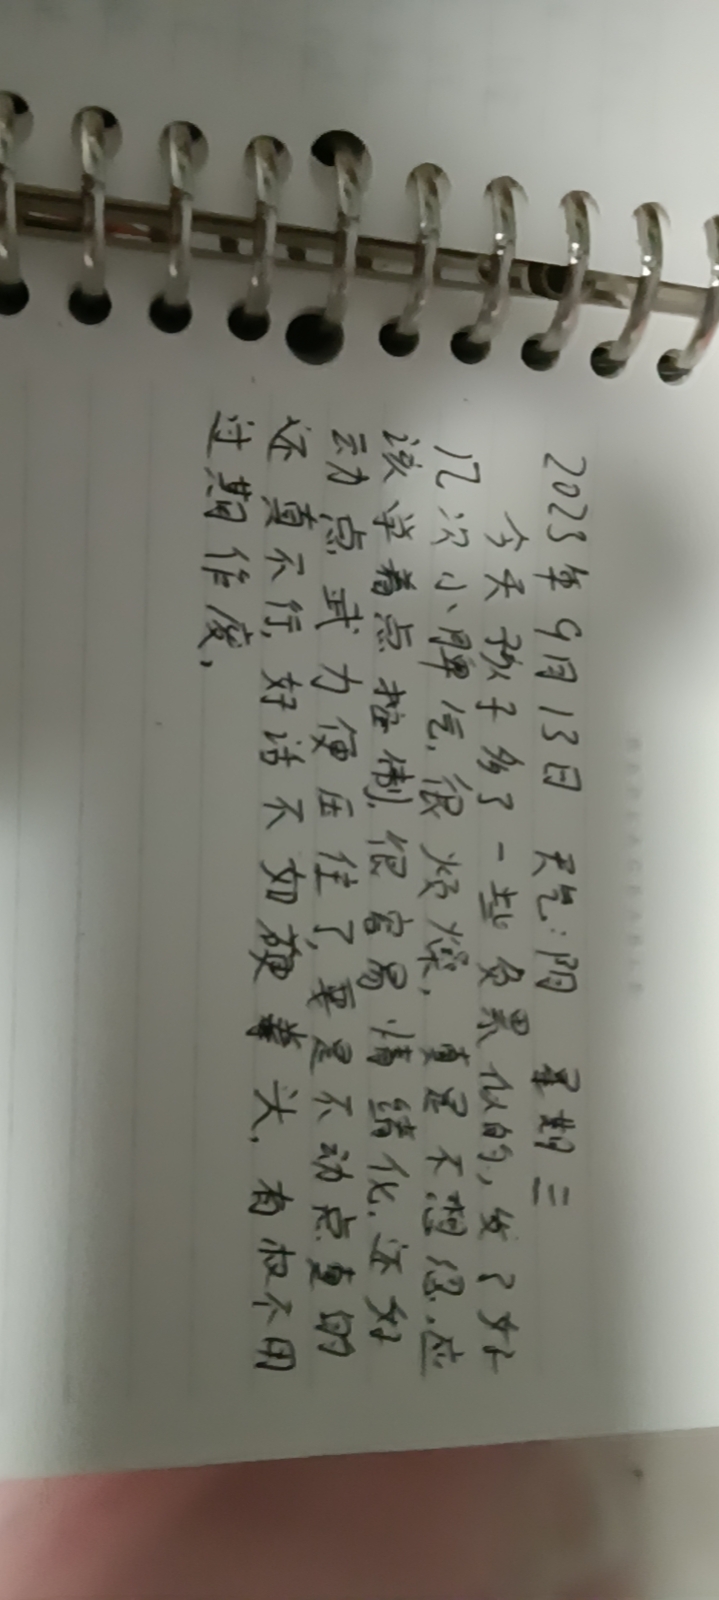 2023年9月13日 天气:阴 星期三
今天孩子多了一些负累似的,发了好
几次小脾气.很烦燥,真是不想忍.应
该学着点控制.很容易情绪化.还好
动点武力便压住了,要是不动点真的
还真不行,好话不如硬拳头,有权不用
过期作废,